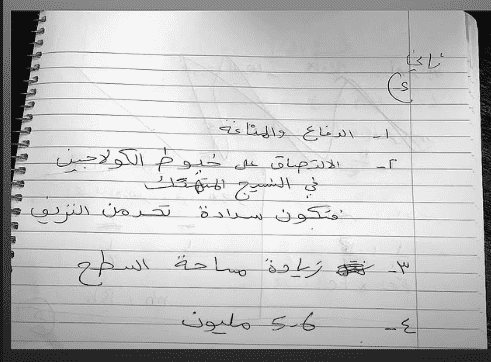 ثاني
١- الدفاع والمناعة
٢- الالتصاق على خيوط الكولاجين
في النسيج المتهتك
فتكون سدادة تحد من النزيف
٣- زيادة مساحة السطح
٤- 5-6 مليون